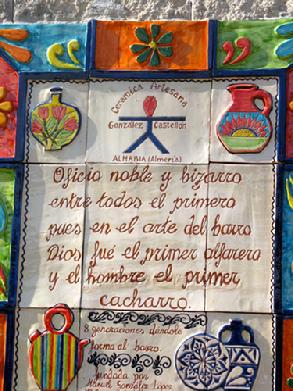 Ceramica Artesana
González Castellón
ALHABIA (Almería)
Oficio noble y bizarro
entre todos el primero
pues en el arte del barro
Dios fué el primer alfarero
y el hombre el primer
cacharro.
8 generaciones dándole
forma al barro.
fundada por